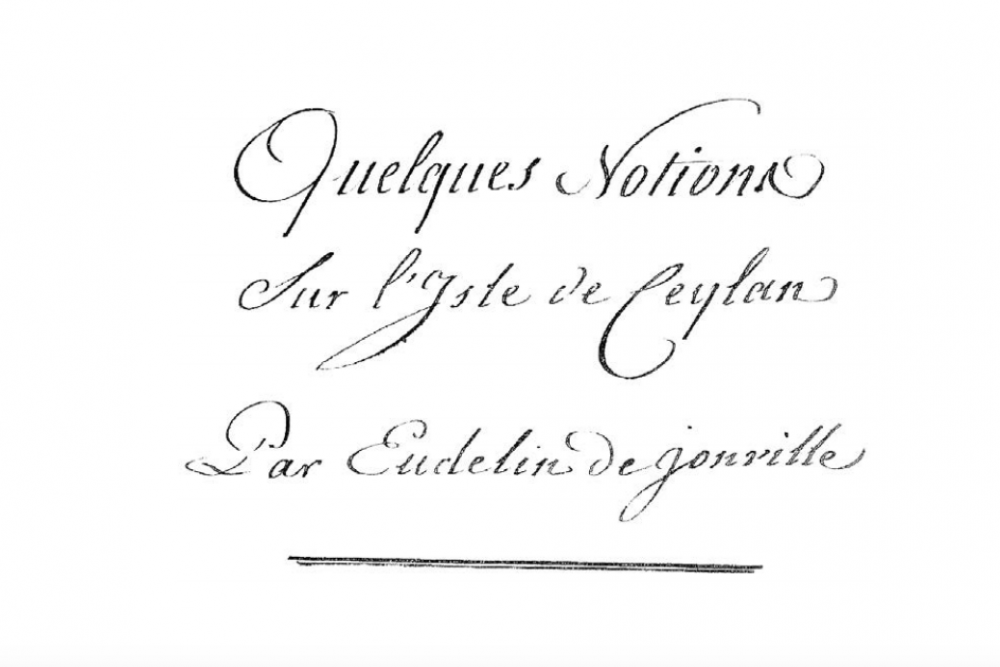 Quelques Notions
Sur l'Isle de Ceylan
Par Eudelin de jonville